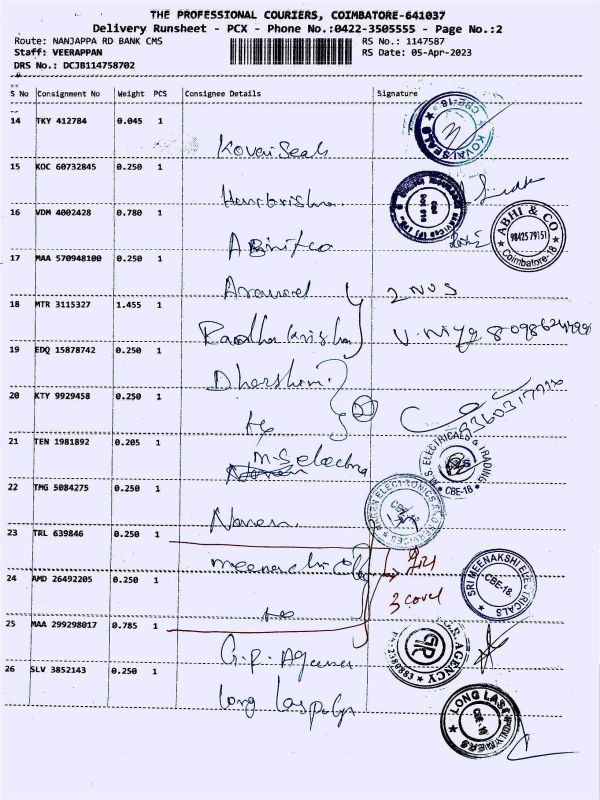 THE PROFESSIONAL COURIERS, COIMBATORE-641037
Delivery Runsheet - PCX - Phone No.:0422-3505555 - Page No.:2
Route: NANJAPPA RD BANK CMS
RS No.: 1147587
Staff: VEERAPPAN
RS Date: 05-Apr-2023
DRS No.: DCJB114758702
S No Consignment No Weight PCS Consignee Details Signature
14 TKY 412784 0.045 1
Kovai Seals
KOVAI SEALS CBE-18
15 KOC 60732845 0.250 1
Harikrishna
16 VDM 4002428 0.780 1
ABHI & CO
98425 79151
Coimbatore-18
17 MAA 570948100 0.250 1
Aravind
2 NOS
18 MTR 3115327 1.455 1
Radha Krishna
19 EDQ 15878742 0.250 1
Dharshini
20 KTY 9929458 0.250 1
21 TEN 1981892 0.205 1
M.S electrical
M.S. ELECTRICALS & TRADING
CBE-18
22 TMG 5084275 0.250 1
Naren
23 TRL 639846 0.250 1
meenakshi
3 cover
24 AMD 26492205 0.250 1
SRI MEENAKSHI ELECTRICALS
CBE-18.
25 MAA 299298017 0.785 1
G.R. Agency
G.R. AGENCY
26 SLV 3852143 0.250 1
Long Last
LONG LAST POLYMERS
CBE-18